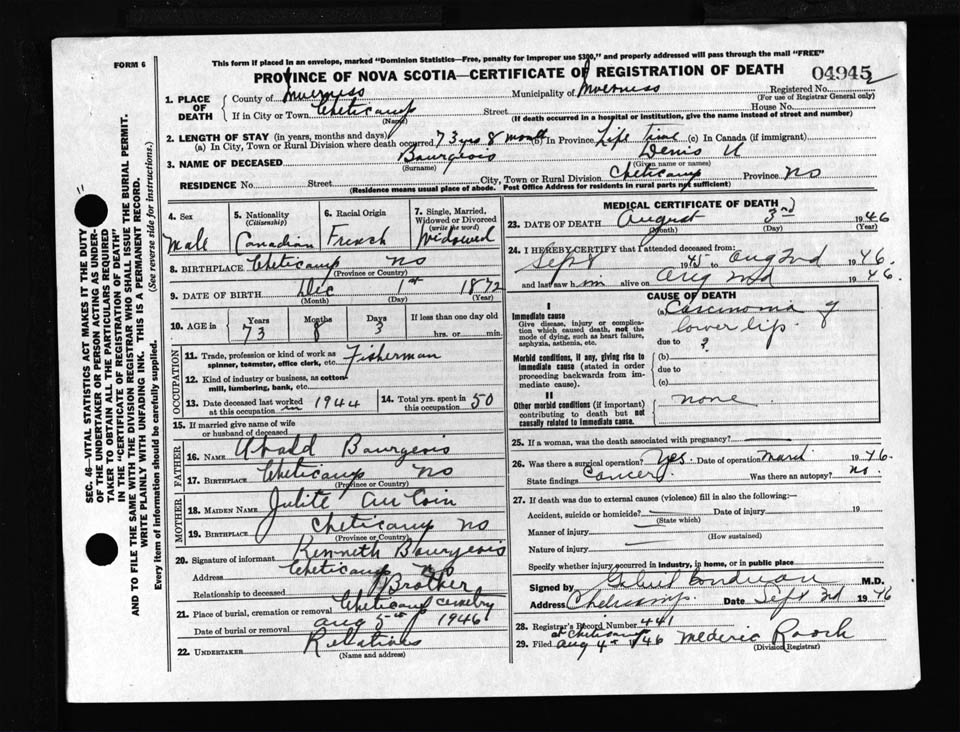 FORM 6
This form if placed in an envelope, marked "Dominion Statistics—Free, penalty for improper use $300," and properly addressed will pass through the mail "FREE"
PROVINCE OF NOVA SCOTIA—CERTIFICATE OF REGISTRATION OF DEATH
04945
Registered No.
(For use of Registrar General only)
1. PLACE OF DEATH
County of Inverness Municipality of Inverness
If in City or Town Cheticamp Street House No.
(Name) (If death occurred in a hospital or institution, give the name instead of street and number)
2. LENGTH OF STAY (in years, months and days)
(a) In City, Town or Rural Division where death occurred 73 yrs 8 month (b) In Province Life Time (c) In Canada (if immigrant)
3. NAME OF DECEASED Bourgeois Denis
(Surname) (Given name or names)
RESIDENCE No. Street City, Town or Rural Division Cheticamp Province NS
(Residence means usual place of abode. Post Office Address for residents in rural parts not sufficient)
4. Sex Male
5. Nationality (Citizenship) Canadian
6. Racial Origin French
7. Single, Married, Widowed or Divorced (write the word) Widowed
8. BIRTHPLACE Cheticamp NS
(Province or Country)
9. DATE OF BIRTH Dec 1st 1872
(Month) (Day) (Year)
10. AGE in Years Months Days If less than one day old
73 8 3 hrs. or min.
OCCUPATION
11. Trade, profession or kind of work as spinner, teamster, office clerk, etc. Fisherman
12. Kind of industry or business, as cotton-mill, lumbering, bank, etc.
13. Date deceased last worked at this occupation in 1944
14. Total yrs. spent in this occupation 50
15. If married give name of wife or husband of deceased
FATHER
16. Name Bourgeois
17. Birthplace Cheticamp NS
(Province or Country)
MOTHER
18. Maiden Name Julite Au Coin
19. Birthplace Cheticamp NS
(Province or Country)
20. Signature of informant Kenneth Bourgeois
Address Cheticamp NS
Relationship to deceased Brother
21. Place of burial, cremation or removal Cheticamp cemetry
Date of burial or removal Aug 5th 1946
22. Undertaker Relatives
(Name and address)
MEDICAL CERTIFICATE OF DEATH
23. DATE OF DEATH August 3rd 1946
(Month) (Day) (Year)
24. I HEREBY CERTIFY that I attended deceased from:
Sept 1945 to Aug 2nd 1946.
and last saw him alive on Aug 2nd 1946.
CAUSE OF DEATH
I
Immediate cause
Give disease, injury or complication which caused death, not the mode of dying, such as heart failure, asphyxia, asthenia, etc.
(a) Carcinoma of lower lip.
due to ?
Morbid conditions, if any, giving rise to immediate cause (stated in order proceeding backwards from immediate cause).
(b)
due to
(c)
II
Other morbid conditions (if important) contributing to death but not causally related to immediate cause.
none
25. If a woman, was the death associated with pregnancy?
26. Was there a surgical operation? Yes. Date of operation March 1946.
State findings Cancer. Was there an autopsy? no.
27. If death was due to external causes (violence) fill in also the following:—
Accident, suicide or homicide? Date of injury 19
(State which)
Manner of injury
(How sustained)
Nature of injury
Specify whether injury occurred in industry, in home, or in public place
Signed by M.D.
Address Cheticamp. Date Sept 2nd 1946
28. Registrar's Record Number 441
29. Filed at Cheticamp Aug 4th 1946 Mederic Roach
(Division Registrar)
SEC. 46—VITAL STATISTICS ACT MAKES IT THE DUTY OF THE UNDERTAKER OR PERSON ACTING AS UNDERTAKER TO OBTAIN ALL THE PARTICULARS REQUIRED IN THE "CERTIFICATE OF REGISTRATION OF DEATH" AND TO FILE THE SAME WITH THE DIVISION REGISTRAR WHO SHALL ISSUE THE BURIAL PERMIT.
WRITE PLAINLY WITH UNFADING INK. THIS IS A PERMANENT RECORD.
Every item of information should be carefully supplied. (See reverse side for instructions.)